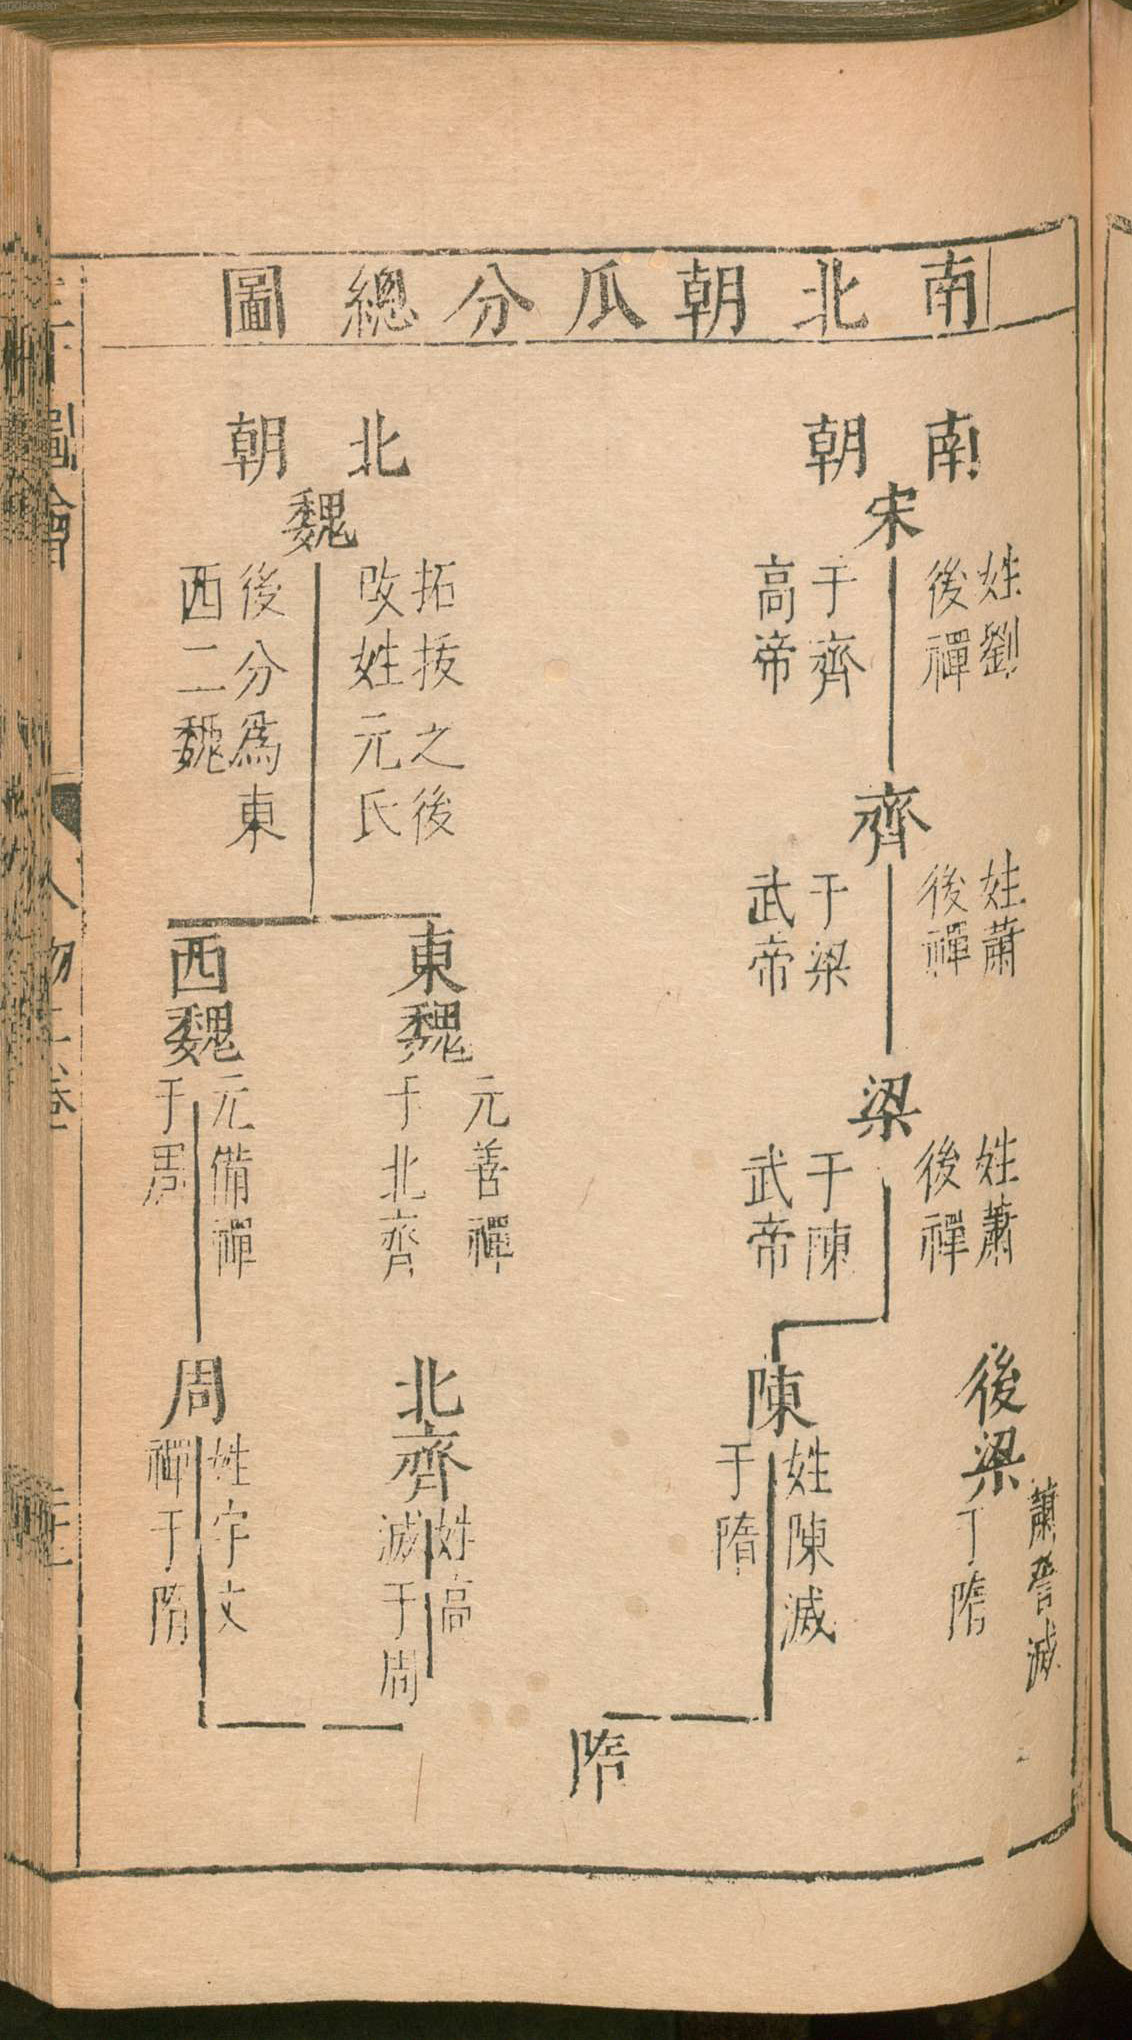 00060830
南北朝瓜分總圖
南朝
宋
姓劉
後禪
于齊
高帝
齊
姓蕭
後禪
于梁
武帝
梁
姓蕭
後禪
于陳
武帝
後梁
蕭詧滅
于隋
陳
姓陳滅
于隋
北朝
魏
拓拔之後
改姓元氏
後分爲東
西二魏
東魏
元善禪
于北齊
西魏
元備禪
于周
北齊
姓高
滅于周
周
姓宇文
禪于隋
隋
圖會
人物二卷